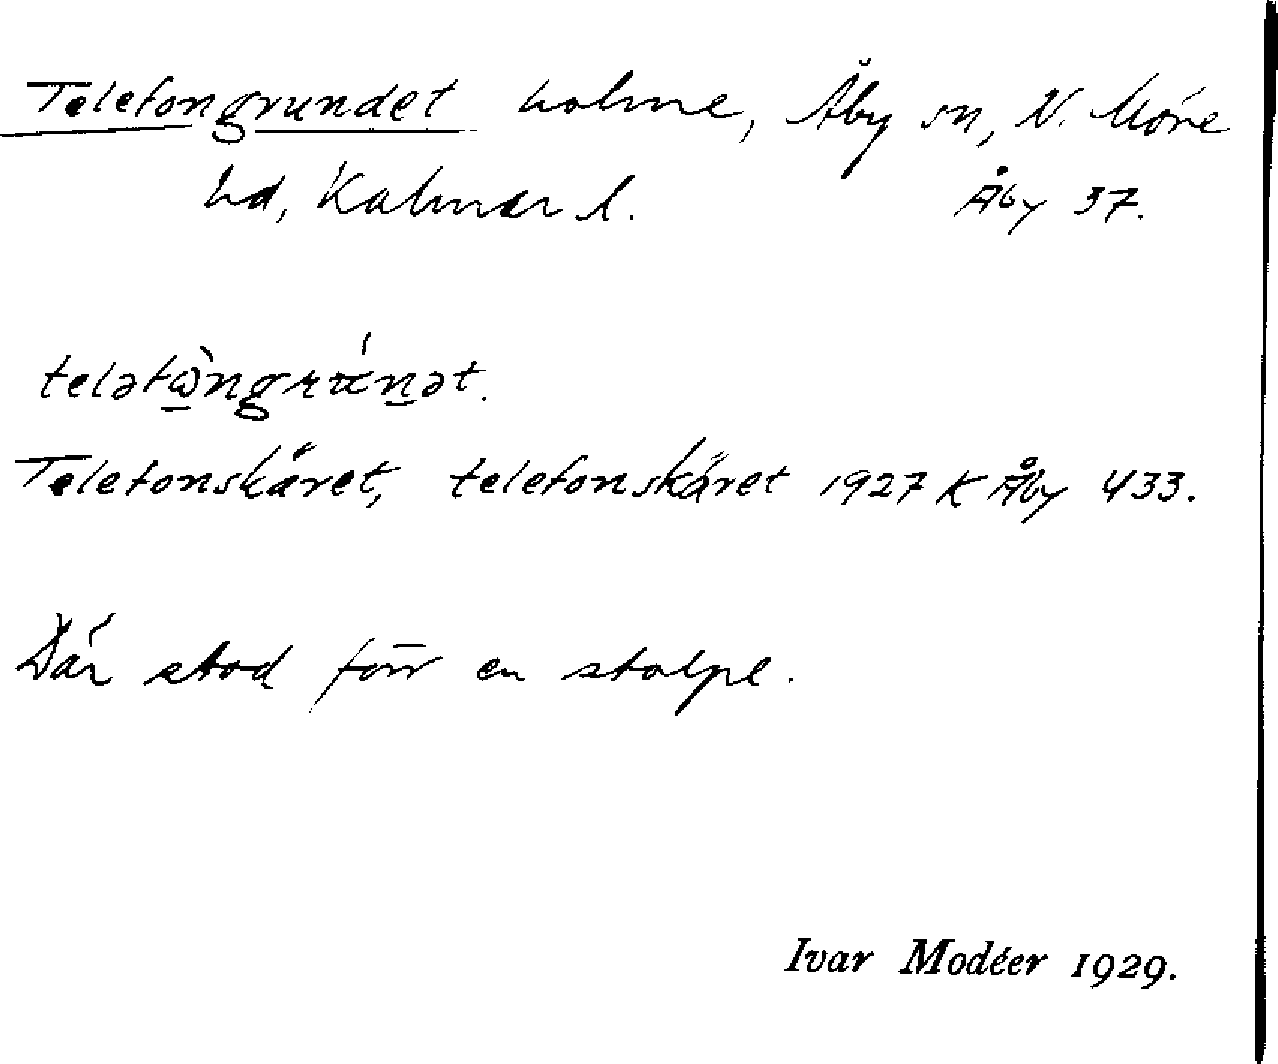 Telefongrundet holme, Åby sn, N. Möre
hd, Kalmar l. Åby 37.
teləfὼngrάnət.
Telefonskäret, telefonskäret 1927 K Åby 433.
Där stod förr en stolpe.
Ivar Modéer 1929.